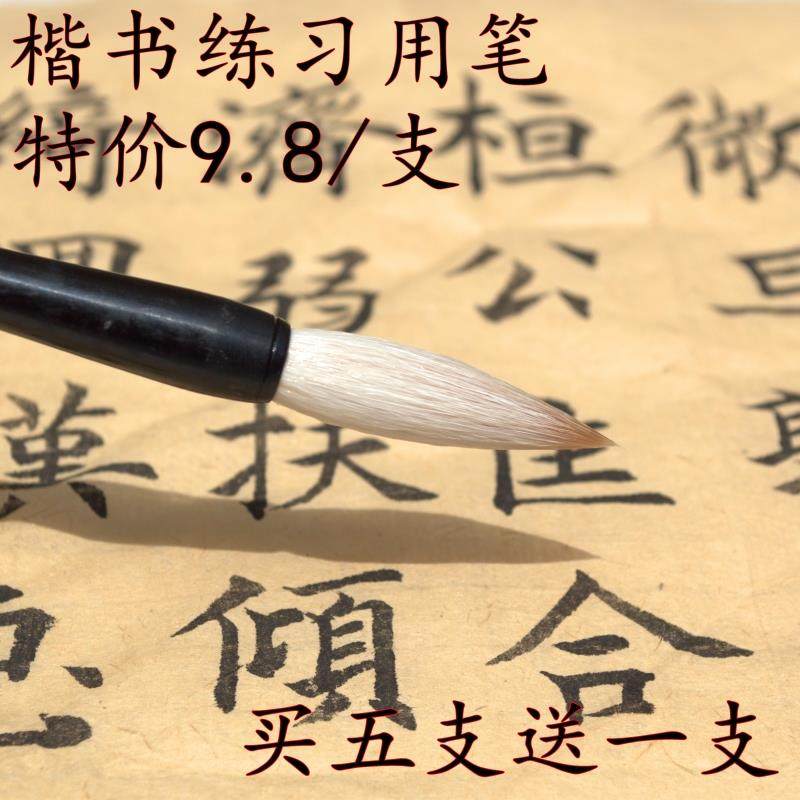 楷书练习用笔
特价9.8/支
微旦
桓公匡合
濟弱扶傾
漢
买五支送一支